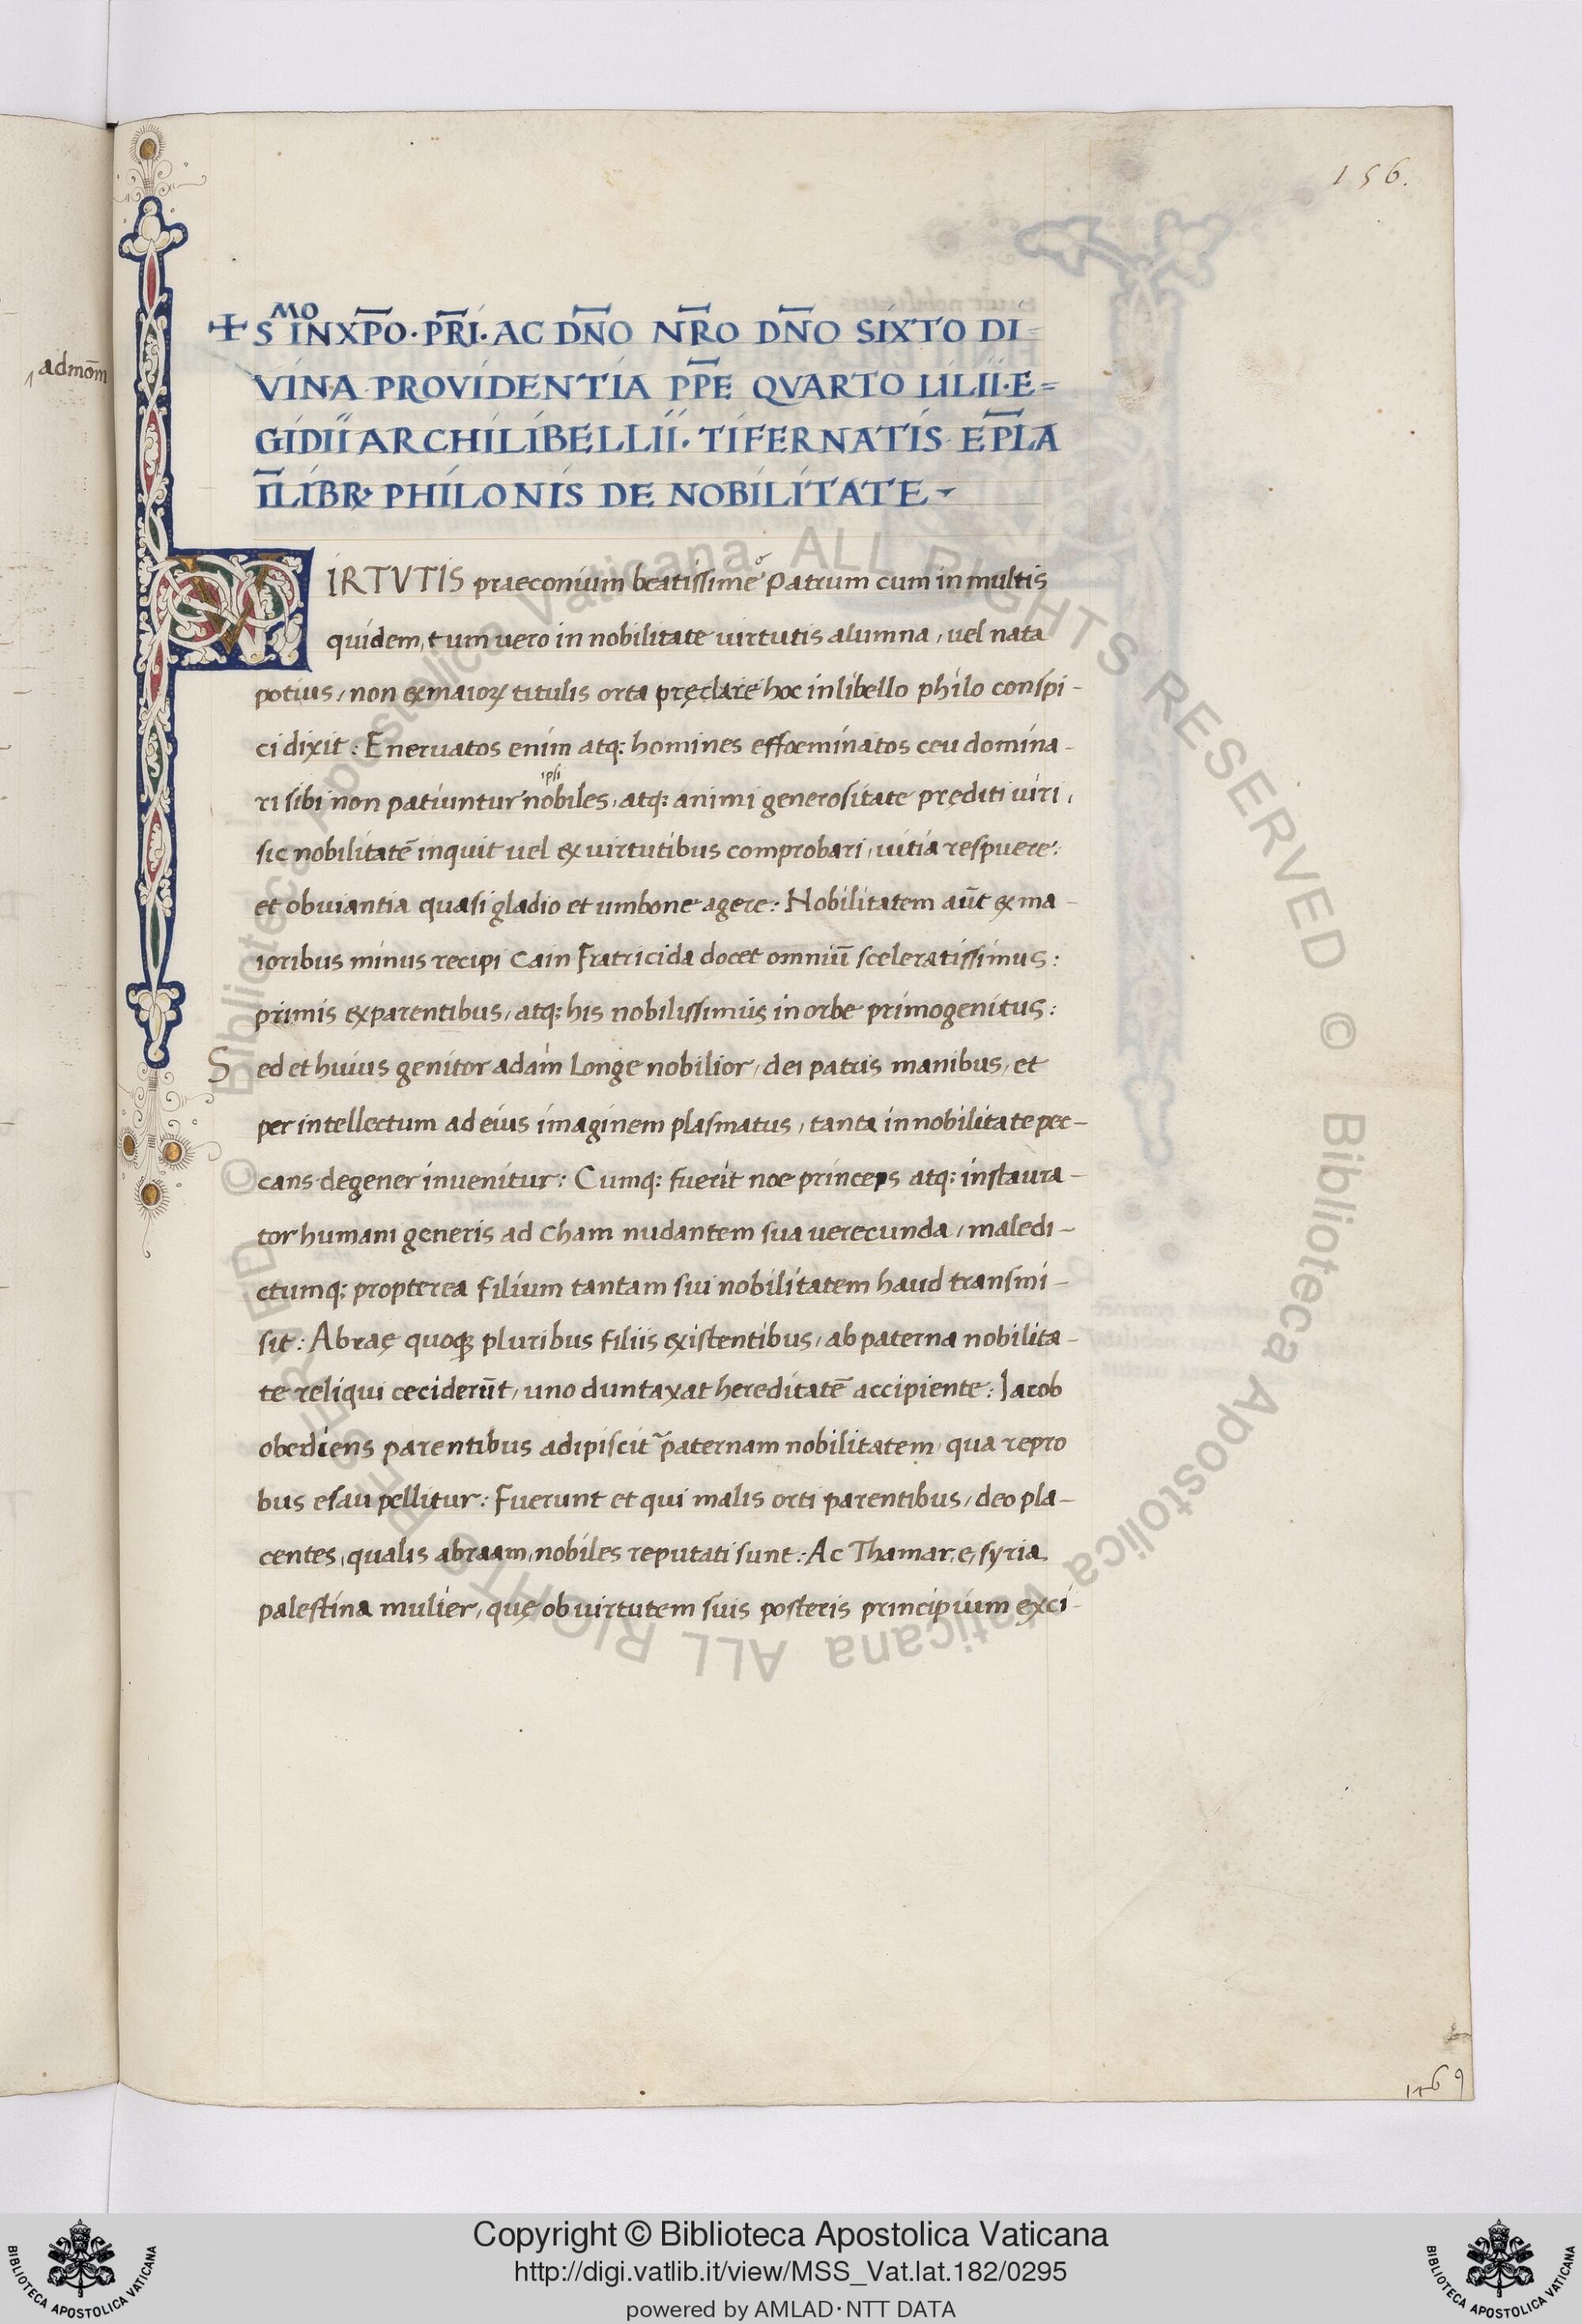 156.
admōm
+ SMO INXP̄O · PR̄I · AC DN̄O NR̄O DN̄O SIXTO DI=
VINA PROVIDENTIA PP̄E QVARTO LILII · E=
GIDII ARCHILIBELLII · TIFERNATIS EP̄LA
ĪILIBRꝜ PHILONIS DE NOBILITATE
VIRTVTIS praeconium beatissime ó Patrum cum in multis
quidem, tum vero in nobilitate uirtutis alumna, uel nata
potius, non ex maioꝝ titulis orta pręclare hoc in libello philo conspi-
ci dixit: Eneruatos enim atq; homines effoeminatos ceu domina-
ri sibi non patiuntur ipsi nobiles, atq; animi generositate pręditi uiri,
sic nobilitatē inquit uel ex virtutibus comprobari, uitia respuere:
et obuiantia quasi gladio et umbone agere: Nobilitatem aūt ex ma-
ioribus minus recipi Cain fratricida docet omniū sceleratissimus:
primis ex parentibus, atq; his nobilissimus in orbe primogenitus:
Sed et huius genitor adam longe nobilior, dei patris manibus, et
per intellectum ad eius imaginem plasmatus, tanta in nobilitate pec-
cans degener inuenitur: Cumq; fuerit noe princeps atq; instaura-
tor humani generis ad Cham nudantem sua uerecunda, maledi-
ctumq; propterea filium tantam sui nobilitatem haud transmi-
sit: Abraę quoq; pluribus filiis existentibus, ab paterna nobilita-
te reliqui ceciderūt, uno duntaxat hereditatē accipiente: Iacob
obediens parentibus adipiscit̄ paternam nobilitatem, qua repro
bus esau pellitur: Fuerunt et qui malis orti parentibus, deo pla-
centes, qualis abraam, nobiles reputati sunt: Ac Thamar, e, syria
palestina mulier, quę ob virtutem suis posteris principium exci-
© Biblioteca Apostolica Vaticana ALL RIGHTS RESERVED © Biblioteca Apostolica Vaticana ALL RIGHTS RESERVED
Copyright © Biblioteca Apostolica Vaticana
http://digi.vatlib.it/view/MSS_Vat.lat.182/0295
powered by AMLAD·NTT DATA
BIBLIOTECA APOSTOLICA VATICANA
BIBLIOTECA APOSTOLICA VATICANA